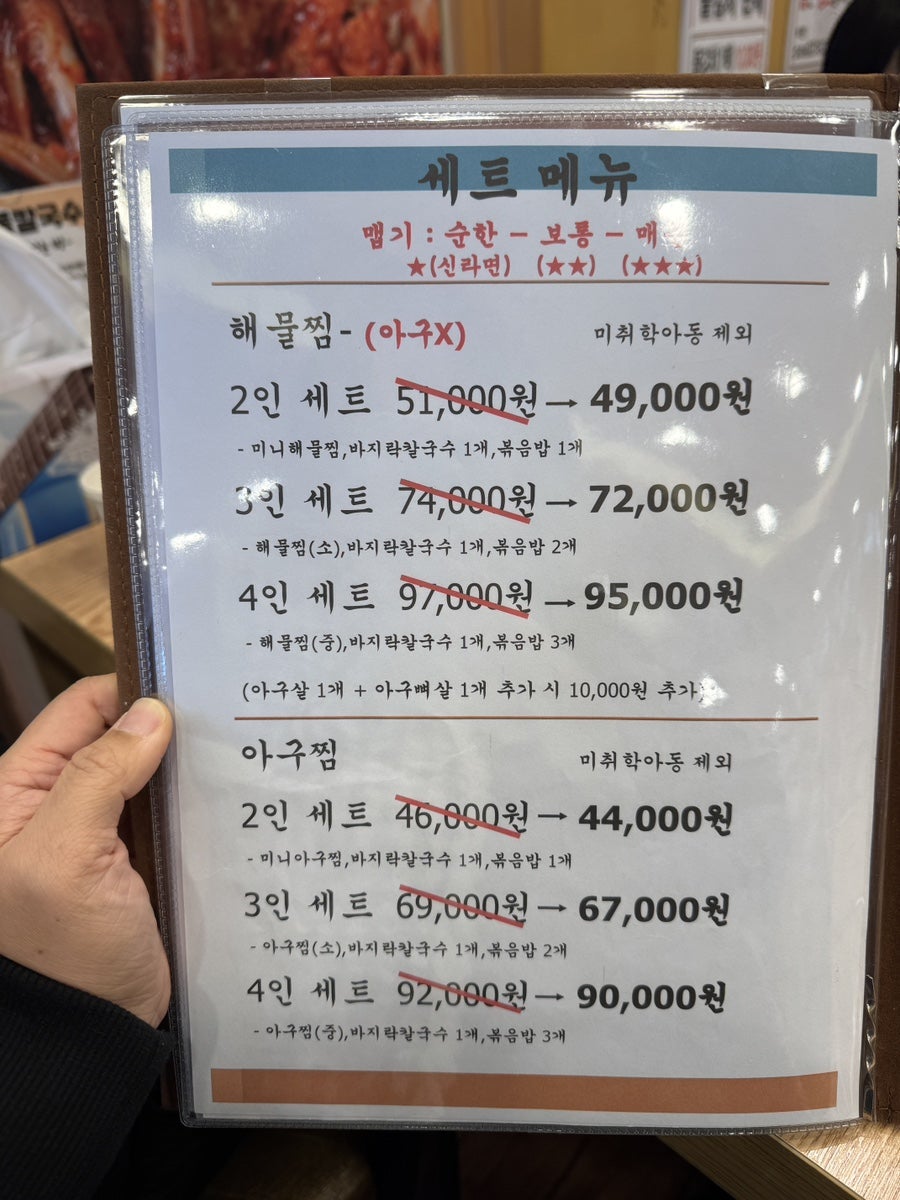 세트 메뉴
맵기 : 순한 - 보통 - 매
★(신라면) (★★) (★★★)
해물찜- (아구X) 미취학아동 제외
2인 세트 51,000원 → 49,000원
- 미니해물찜,바지락칼국수 1개,볶음밥 1개
3인 세트 74,000원 → 72,000원
- 해물찜(소),바지락칼국수 1개,볶음밥 2개
4인 세트 97,000원 → 95,000원
- 해물찜(중),바지락칼국수 1개,볶음밥 3개
(아구살 1개 + 아구뼈살 1개 추가 시 10,000원 추가)
아구찜 미취학아동 제외
2인 세트 46,000원 → 44,000원
- 미니아구찜,바지락칼국수 1개,볶음밥 1개
3인 세트 69,000원 → 67,000원
- 아구찜(소),바지락칼국수 1개,볶음밥 2개
4인 세트 92,000원 → 90,000원
- 아구찜(중),바지락칼국수 1개,볶음밥 3개
칼국수